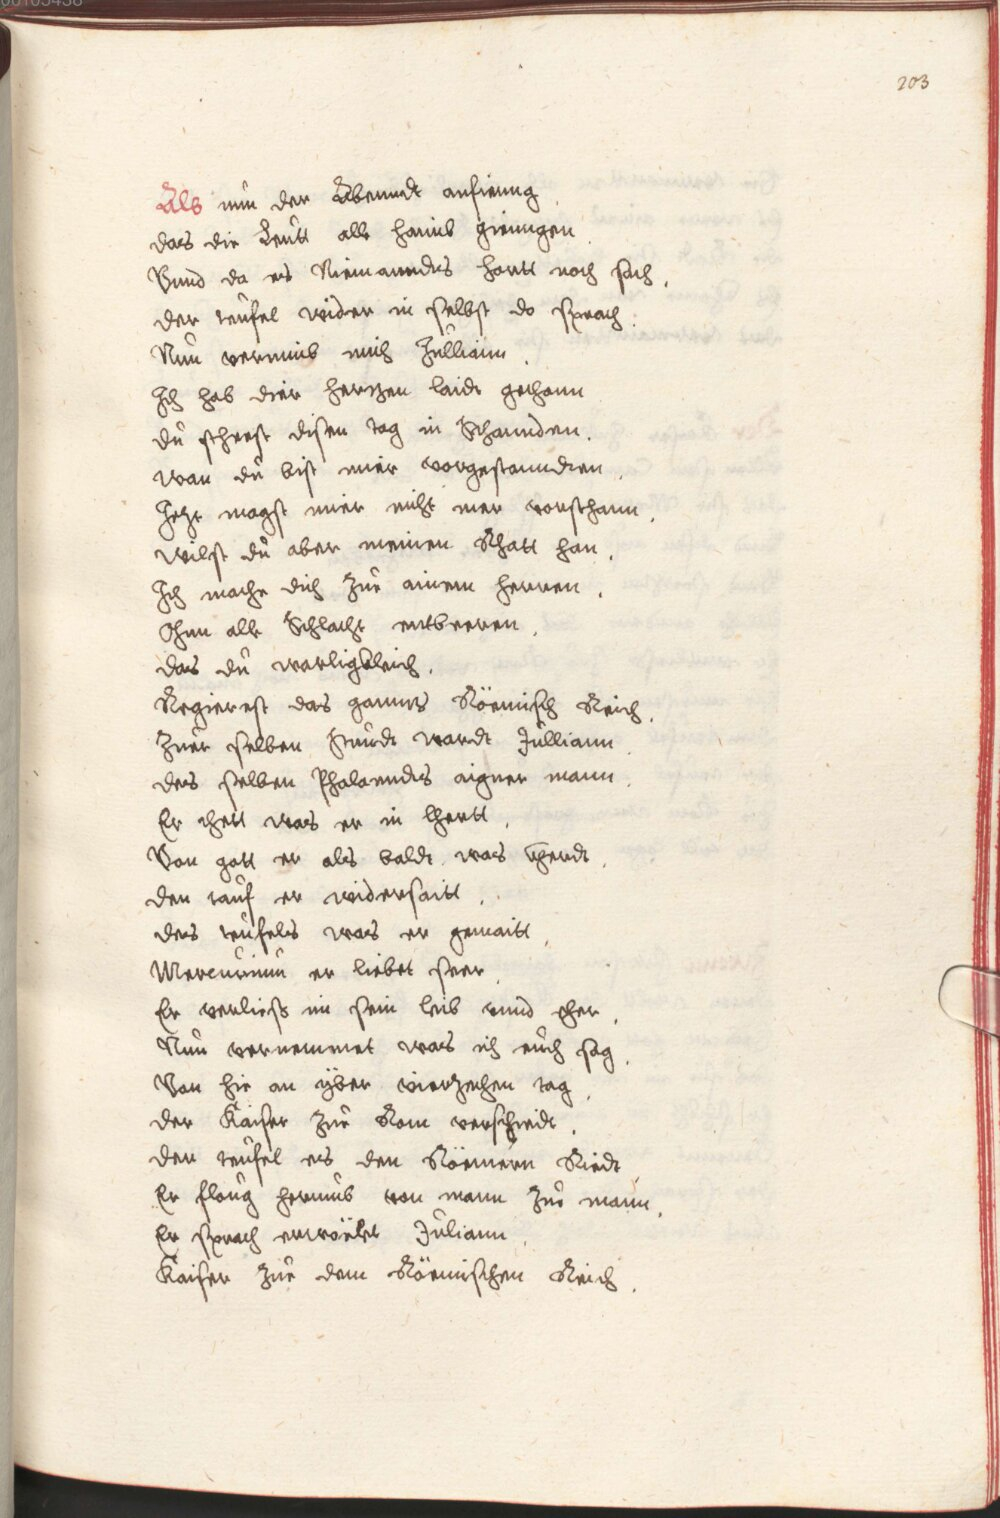 203
Als nun der Abenndt anfienng
das die Leutt alle haimb giengen
Vnnd da es Niemanndts hortt noch sach,
der teufel wider in selbst do sprach.
Nun vernimb mich Jullian
Jch hab dier hertzen laidt gethann
du sthest disen tag in Schannden.
wan du bist mier vorgestannden,
Jetzt magst mier nicht mer vorsthann,
wilst du aber meinen Rhatt han,
Jch mache dich zue ainem herren,
Ohnn alle Schlacht entberen,
das du warligkleich,
Regierest das gannts Röemisch Reich,
Zuer selben Stundt wardt Julliann
des selben Phalanndts aigner mann,
Er thett was er in lhertt,
Von gott er als baldt was kherdt,
den tauf er widersaitt,
des teufels was er gemaitt,
Mercurium er liebet seer,
Er verließ im sein leib vnnd eher,
Nun vernemmet was ich euch sag,
Von hie an yber vierzechen tag,
der Kaiser zue Rom verschiedt,
der teufel es den Röemern Riedt
Er floug herumb von mann zue mann,
Er sprach erwöelet Juliann,
Kaiser zue dem Röemischen Reich,